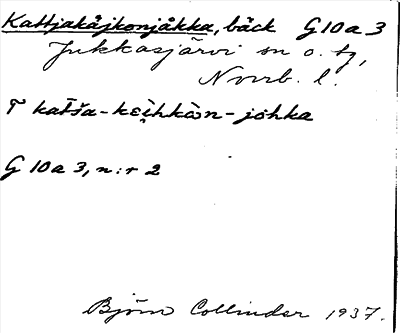 Kattjakåjkonjåkka, bäck G10a3
Jukkasjärvi sn o. tg,
Norrb. l.
T katša-keihkòn-johka
G 10a3, n:r 2
Björn Collinder 1937.